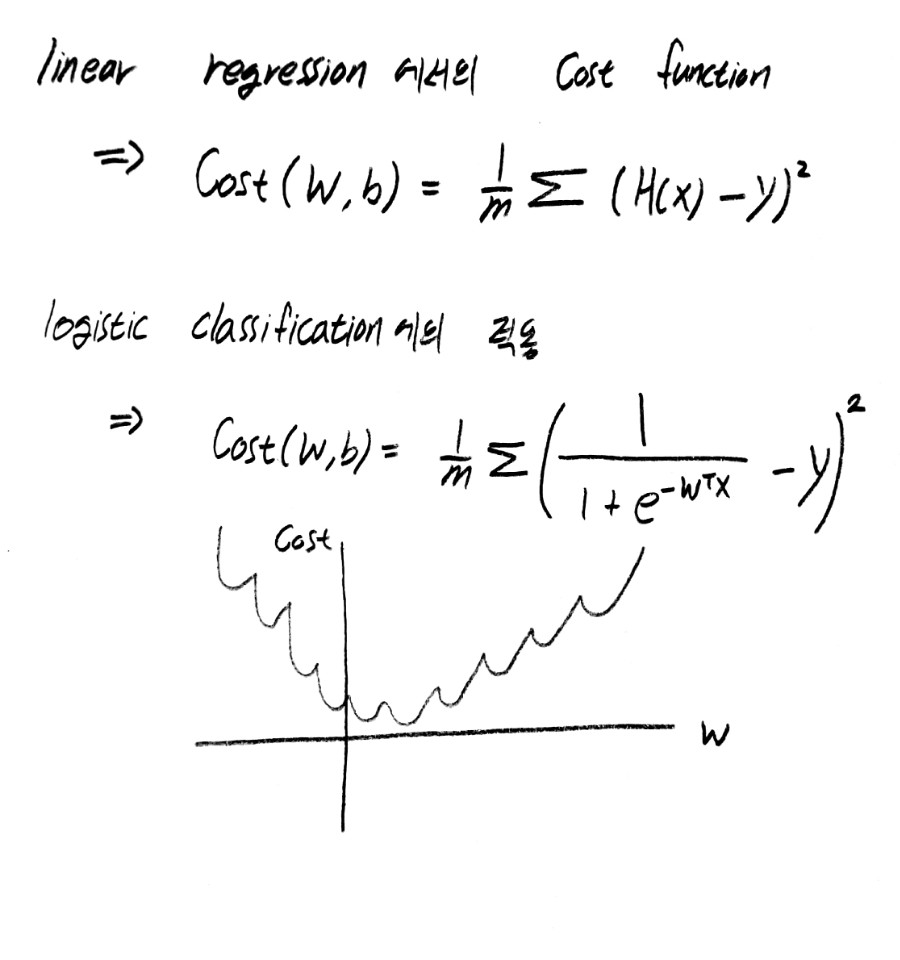 linear regression 에서의 Cost function
⇒ Cost(W,b) = 1/m Σ (H(x) - y)²
logistic classification 에의 적용
⇒ Cost(W,b) = 1/m Σ (1 / (1 + e^(-WᵀX)) - y)²
Cost
W